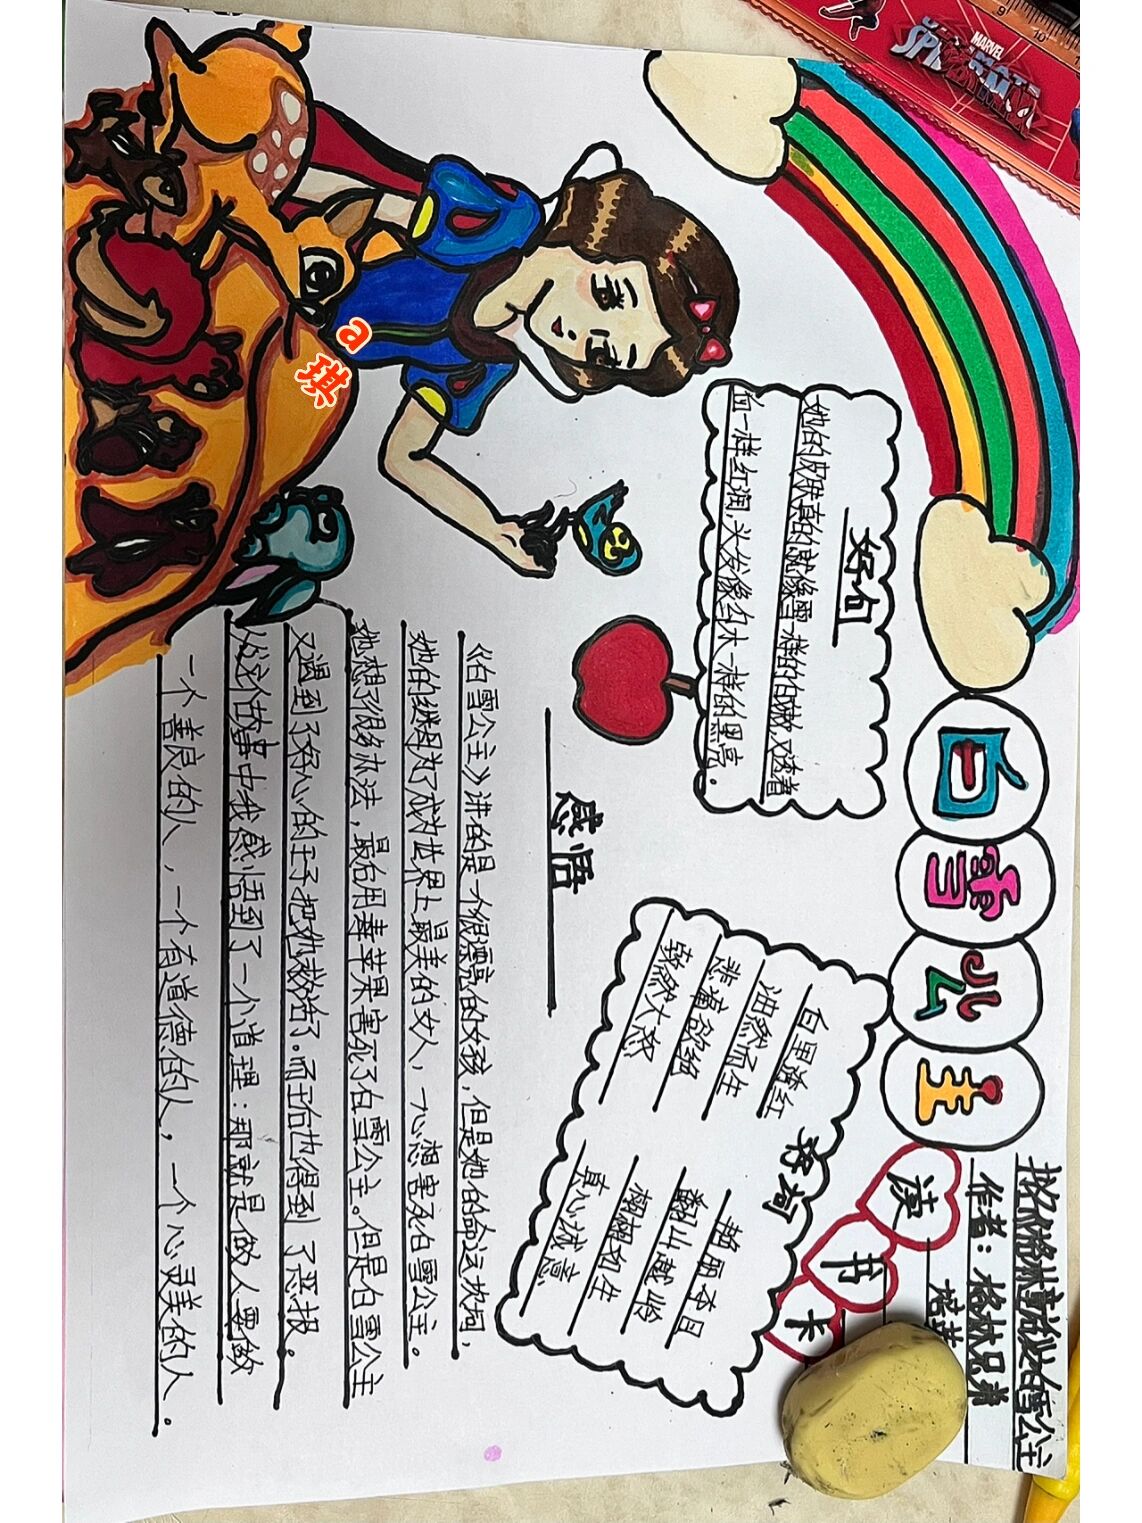 白雪公主
读书卡
作者：格林兄弟
好句
她的皮肤真的就像雪一样的白嫩，又透着
血一样红润，头发像乌木一样的黑亮。
好词
白里透红
油然而生
悲痛欲绝
勃然大怒
艳丽夺目
翻山越岭
栩栩如生
真心诚意
感悟
《白雪公主》讲的是一个很漂亮的女孩，但是她的命运坎坷，
她的继母为了成为世界上最美的女人，一心想害死白雪公主。
她想了很多办法，最后用毒苹果害死了白雪公主。但是白雪公主
又遇到了好心的王子把她救活了。而王后也得到了恶报。
从这个故事中我感悟到了一个道理：那就是做人要做
一个善良的人，一个有道德的人，一个心灵美的人。
a琪
MARVEL
9
10